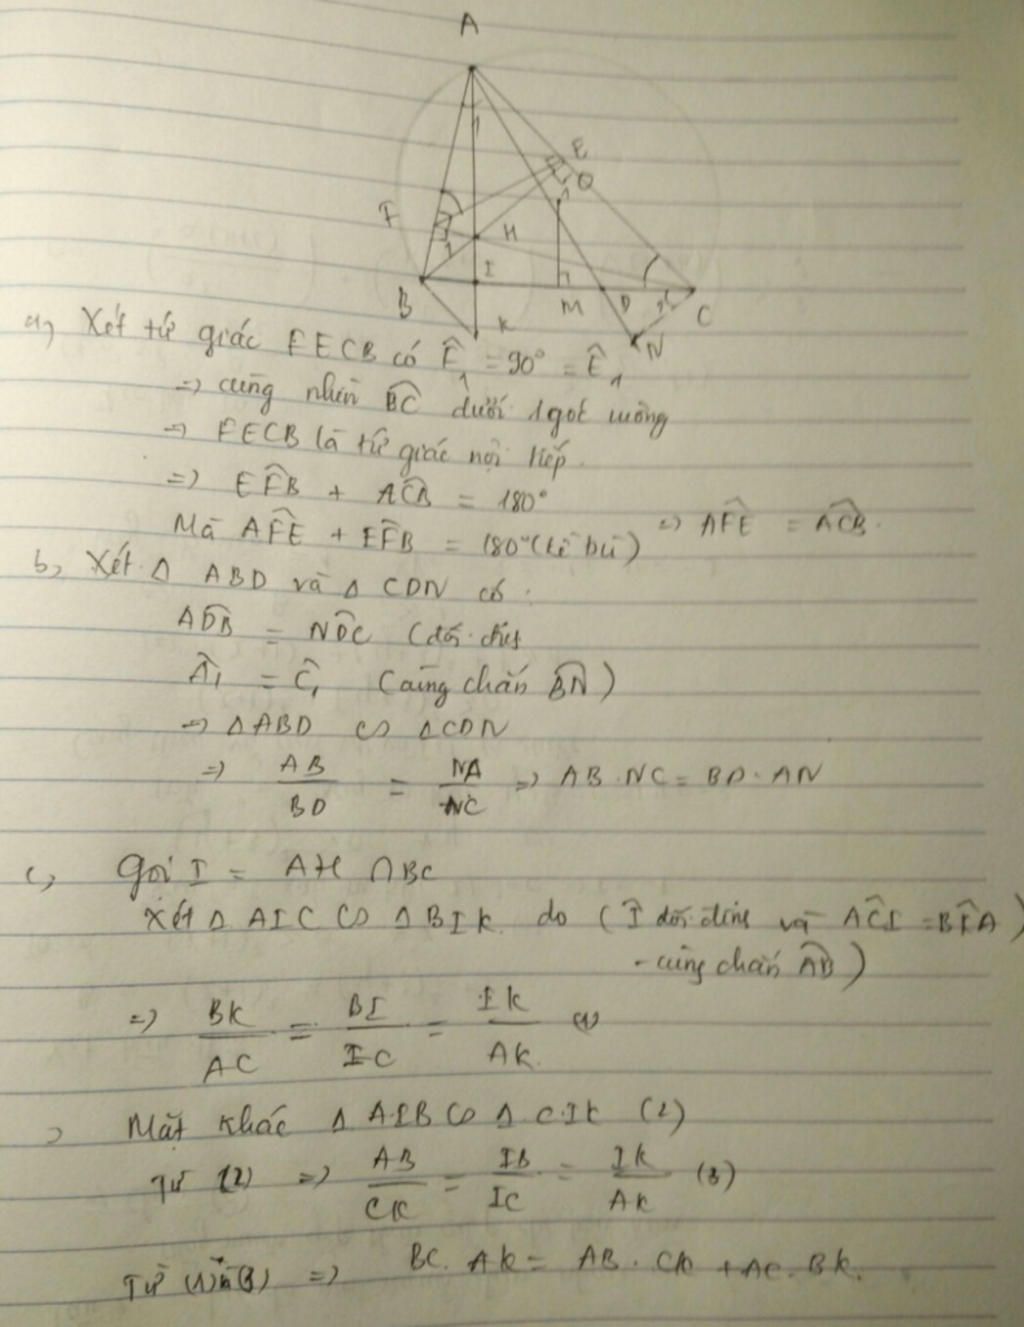 A
E
O
F
1
H
1
I
B
K
M
D
C
N
a, Xét tứ giác FECB có F̂₁ = 90° = Ê₁
=> cùng nhìn BC dưới 1 góc vuông
=> FECB là tứ giác nội tiếp.
=> EF̂B + AĈB = 180°
Mà AF̂E + EF̂B = 180° (kề bù) => AF̂E = AĈB.
b, Xét Δ ABD và Δ CDN có:
AD̂B = ND̂C (đối đỉnh
Â₁ = Ĉ₁ (cùng chắn BN)
=> ΔABD ∽ ΔCDN
=> AB/BD = NA/NC => AB.NC = BD.AN
c, Gọi I = AH ∩ BC
Xét Δ AIC ∽ Δ BIK do (Î đối đỉnh và AĈI =
- cùng chắn AB)
=> BK/AC = BI/IC = IK/AK. (1)
Mặt khác Δ AIB ∽ Δ CIK (2)
Từ (2) => AB/CK = IB/IC = IK/AK (3)
Từ (1) và (3) => BC.AK = AB.CK + AC.BK.